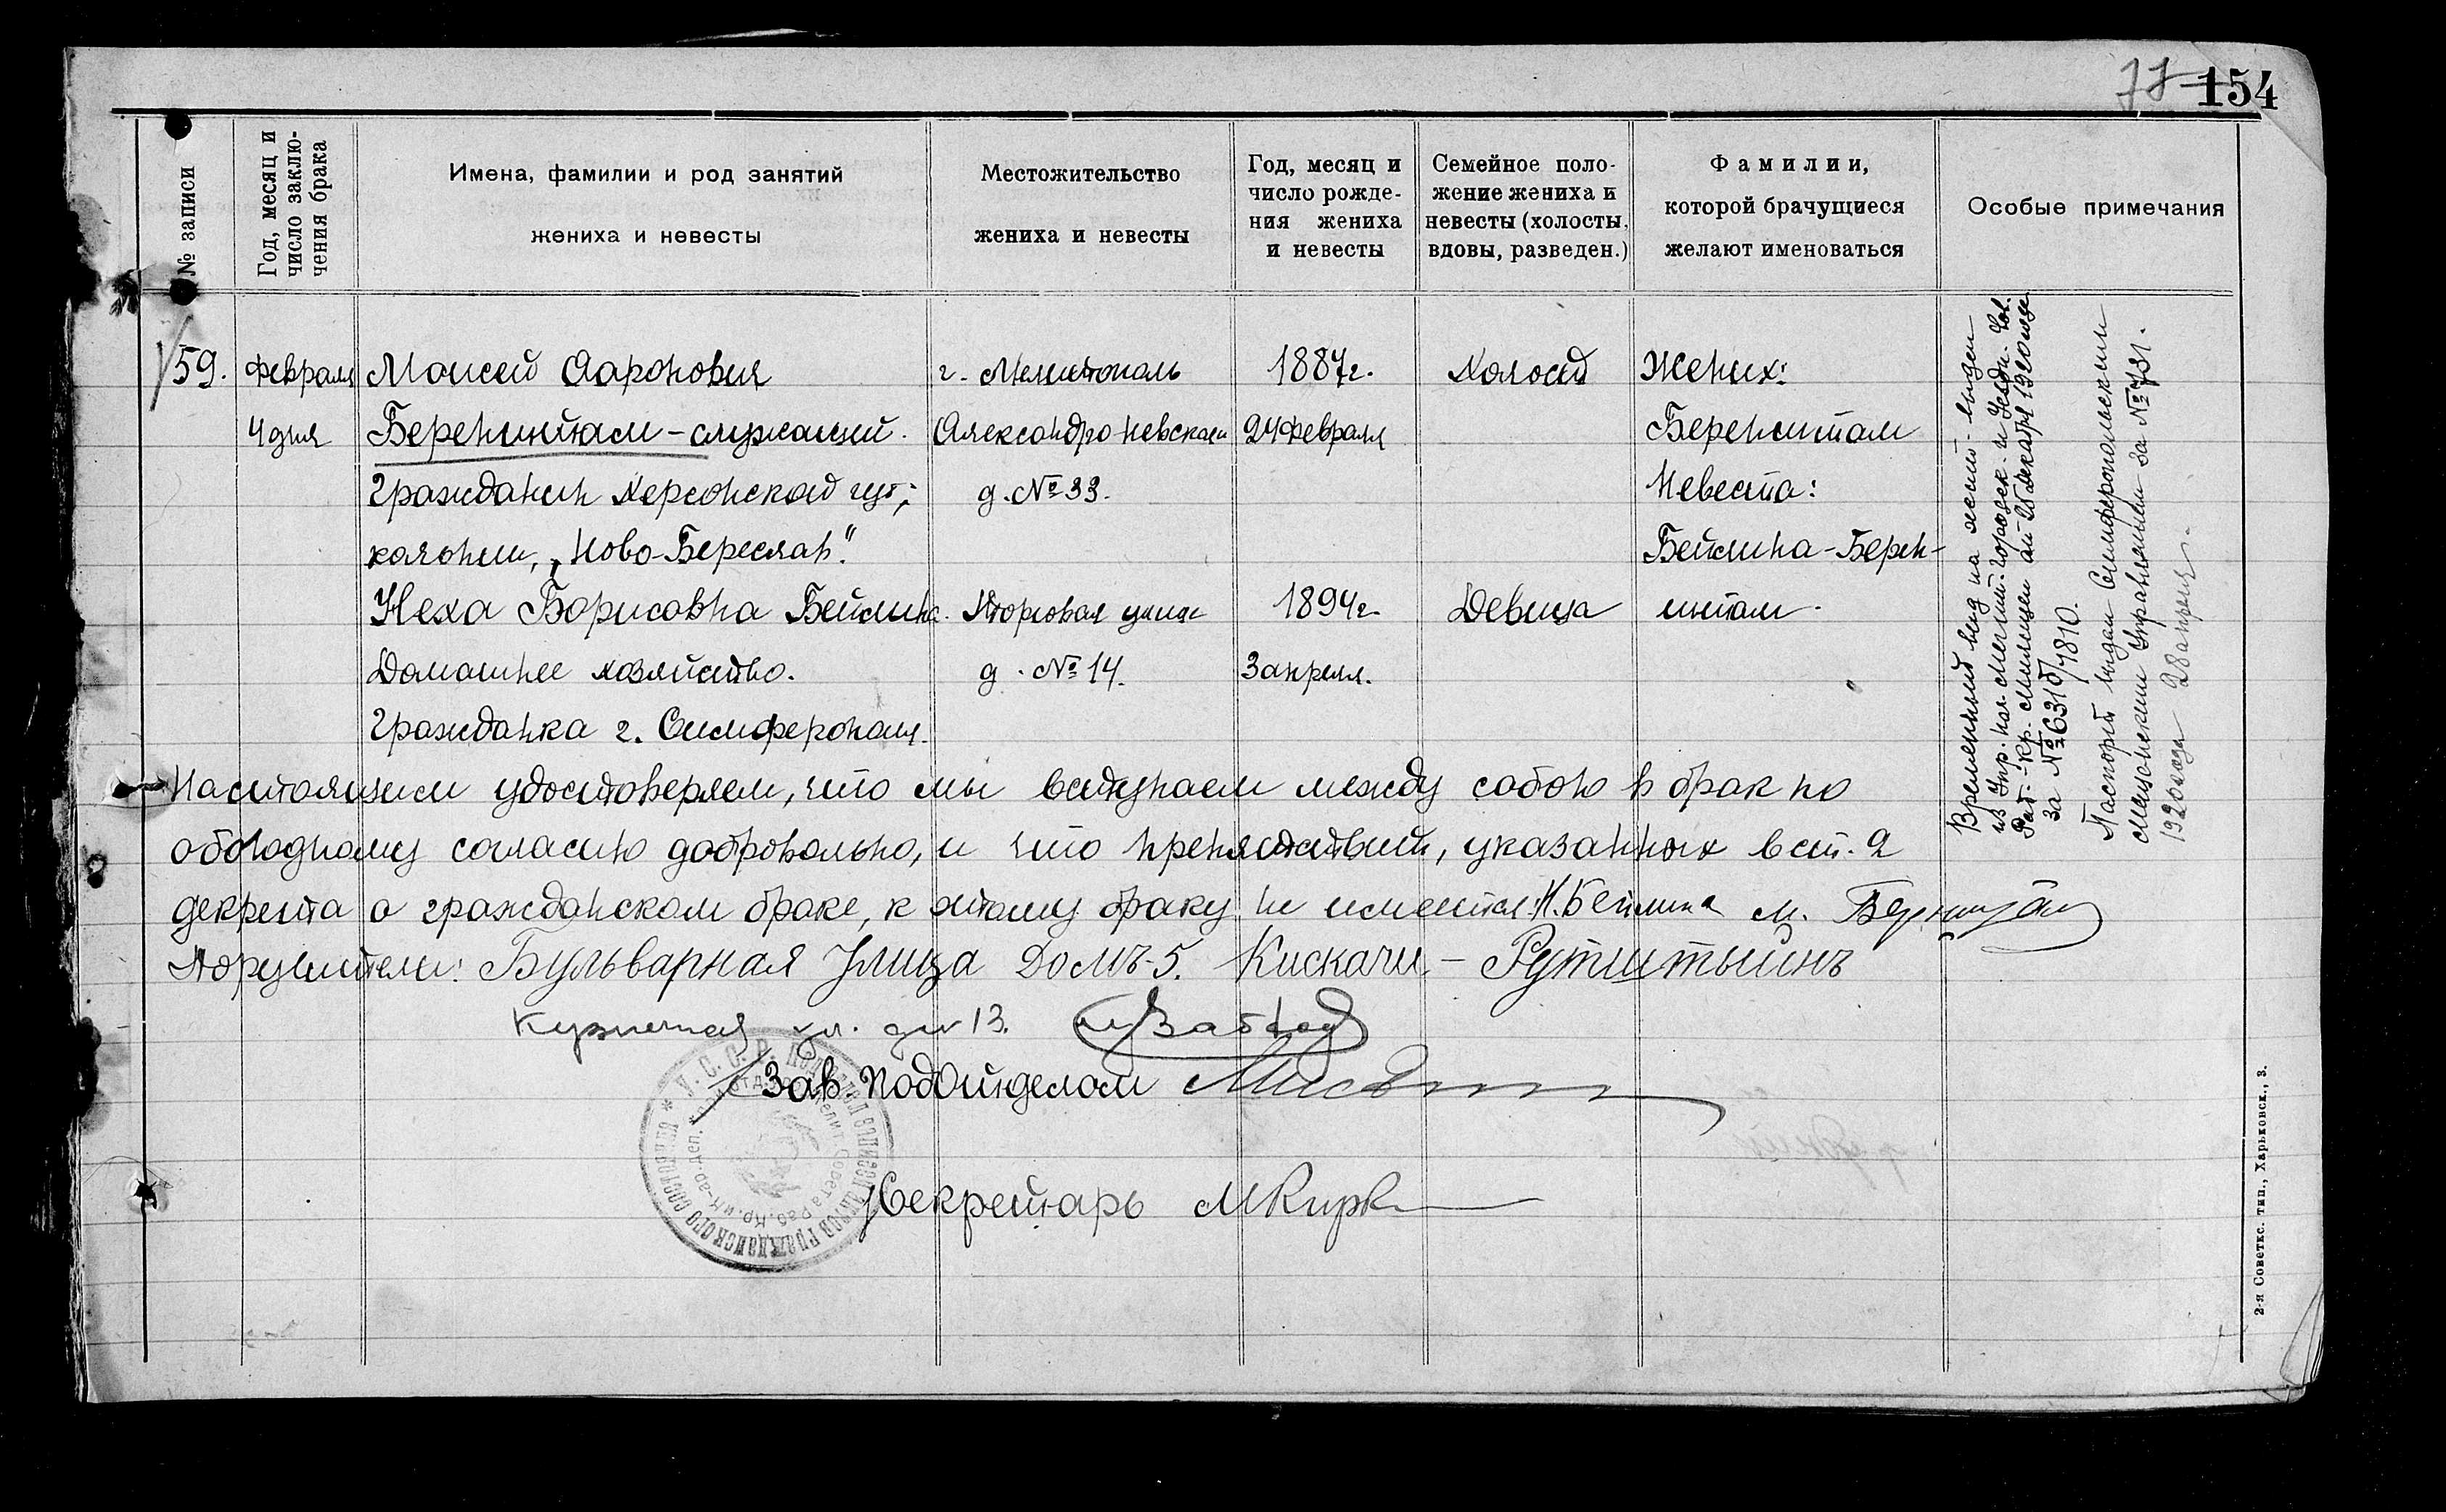 77 154
№ записи
Год, месяц и число заключения брака
Имена, фамилии и род занятий жениха и невесты
Местожительство жениха и невесты
Год, месяц и число рождения жениха и невесты
Семейное положение жениха и невесты (холосты, вдовы, разведен.)
Фамилии, которой брачущиеся желают именоваться
Особые примечания
59. Февраля Моисей Ааронович г. Мелитополь 1887г. Холост Жених:
4 дня Беренштам – служащий. Александро Невская 24 февраля Беренштам
Гражданин Херсонской губ; д. № 33. Невеста:
колонии, „Ново-Береслав". Бейлина-Берен-
Неха Борисовна Бейлина. Торговая улица 1894г. Девица штам.
Домашнее хозяйство. д. № 14. 3 апреля.
Гражданка г. Симферополя.
Настоящим удостоверяем, что мы вступаем между собою в брак по
обоюдному согласию добровольно, и что препятствий, указанных в ст. 2
декрета о гражданском браке, к этому браку не имеется. Н. Бейлина М. Беренштам
Поручители: Бульварная Улица Домъ-5. Кискачи. –
Кузнечная ул. дм 13.
Зав. ПодОтделом
Секретарь
Временный вид на жит. выдан
из Упр. нач. Мелит. городск. и уездн. Сов.
Раб.-Кр. милиции от 25 декабря 1920 года
за № 6310/7810.
Паспорт выдан Симферопольским
мещанским Управлением за № 731.
1920 года 28 апреля.
* У.С.С.Р. Подотдел записи актов гражданского состояния
2-я Советск. тип., Харьковск., 3.